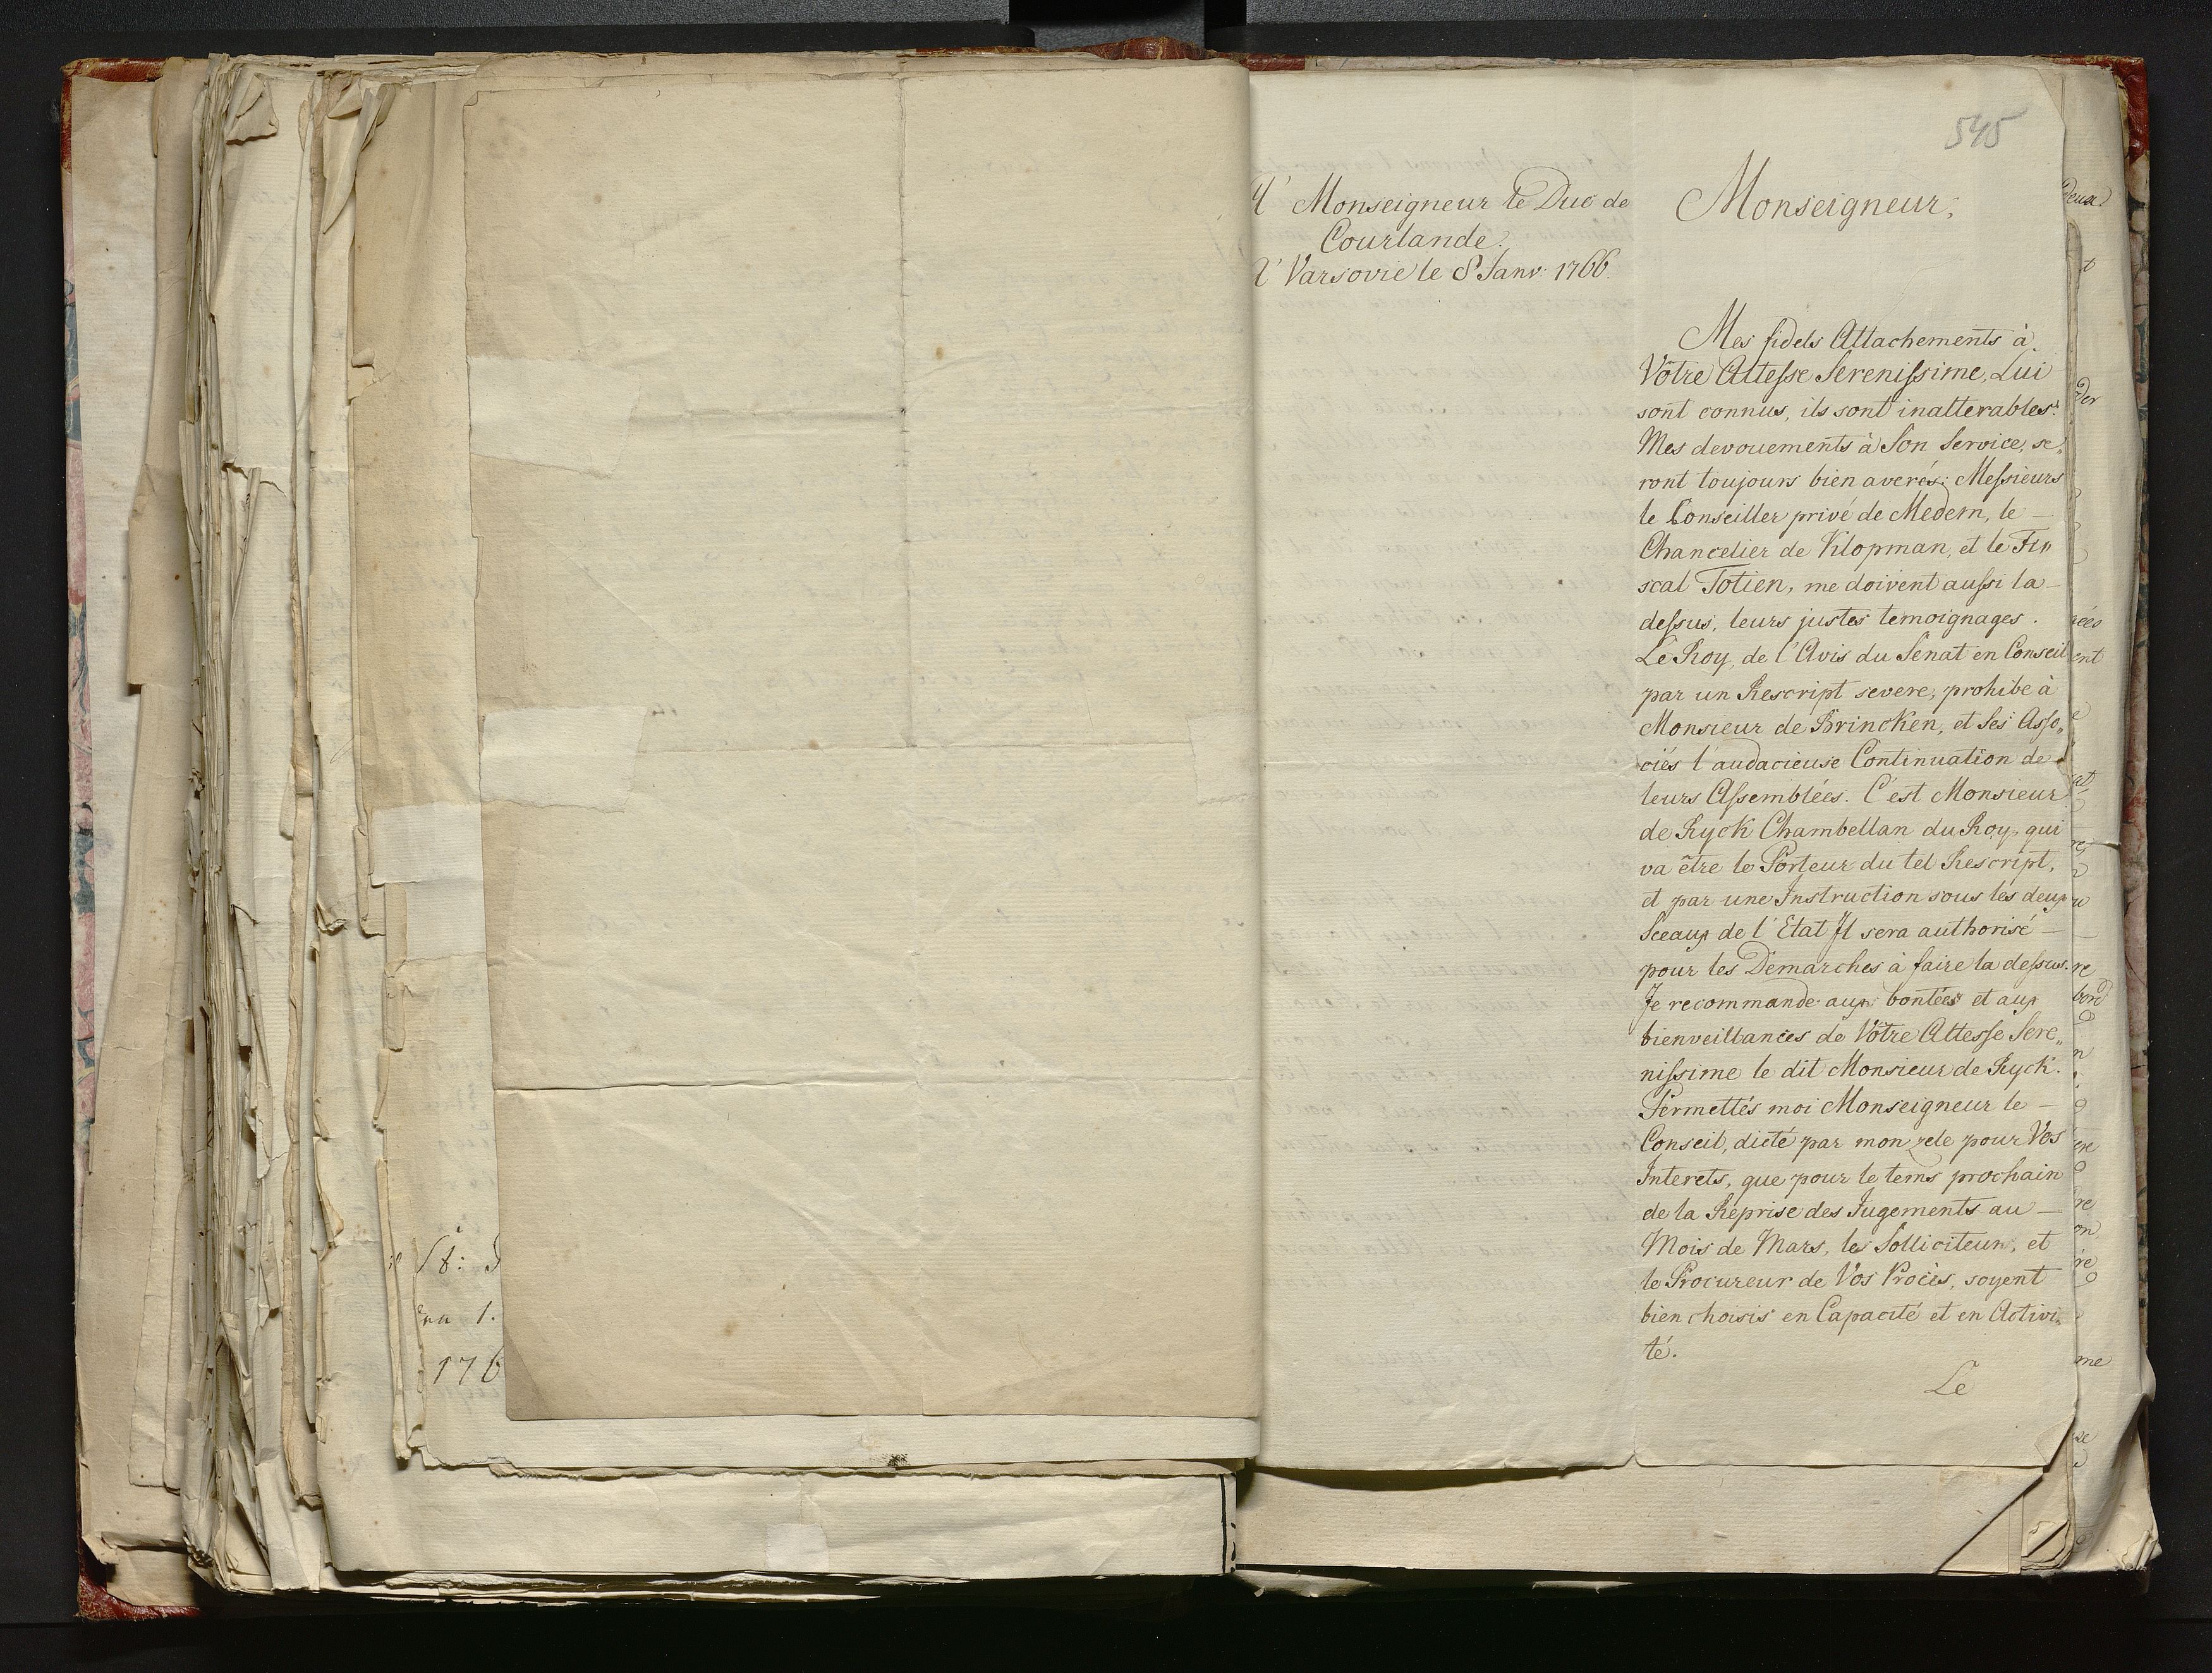 545
A' Monseigneur le Duc de
Courlande.
A' Varsovie le 8 Janv: 1766.
Monseigneur,
Mes fidels Attachements à
Vôtre Altesse Serenissime, Lui
sont connus, ils sont inalterables.
Mes devouements à Son Service, se„
ront toujours bien averés; Messieurs
le Conseiller privé de Medem, le —
Chancelier de Klopman, et le Fi„
scal Totien, me doivent aussi la —
dessus, leurs justes temoignages.
Le Roy, de l'Avis du Senat en Conseil
par un Rescript severe, prohibe à
Monsieur de Brincken, et Ses Asso„
ciés l'audacieuse Continuation de
leurs Assemblées. C'est Monsieur
de Ryck Chambellan du Roy, qui
va être le Porteur du tel Rescript,
et par une Instruction sous les deux
Sceaux de l'Etat Il sera authorisé —
pour les Demarches à faire la dessus.
Je recommande aux bontées et aux
bienveillances de Vôtre Altesse Sere„
nissime le dit Monsieur de Ryck.
Permettés moi Monseigneur le —
Conseil, dicté par mon zele pour Vos
Interets, que pour le tems prochain
de la Réprise des Jugements au —
Mois de Mars, les Solliciteurs, et
le Procureur de Vos Procès, soyent
bien choisis en Capacité et en Activi„
té.
Le
176